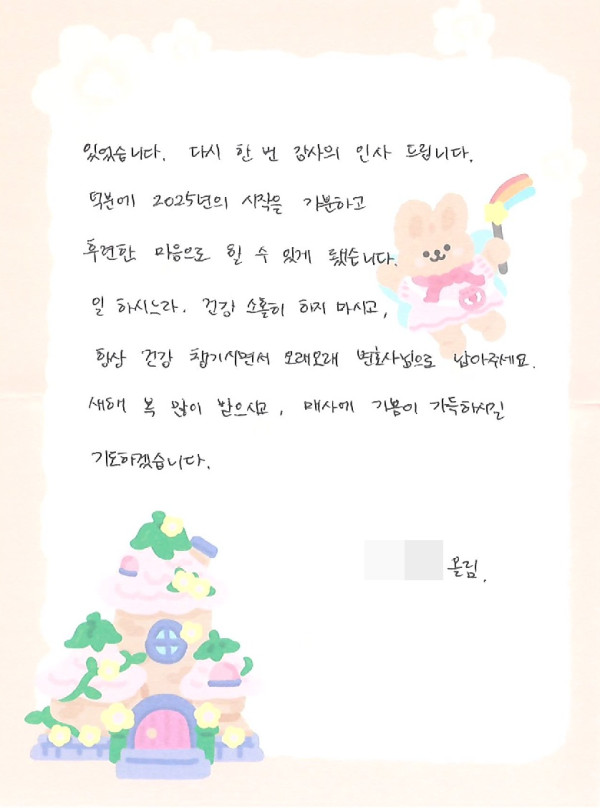 있었습니다. 다시 한 번 감사의 인사 드립니다.
덕분에 2025년의 시작을 기분하고
후련한 마음으로 할 수 있게 됐습니다.
일 하시느라. 건강 소홀히 하지 마시고,
항상 건강 챙기시면서 오래오래 변호사님으로 남아주세요.
새해 복 많이 받으시고, 매사에 기쁨이 가득하시길
기도하겠습니다.
올림.